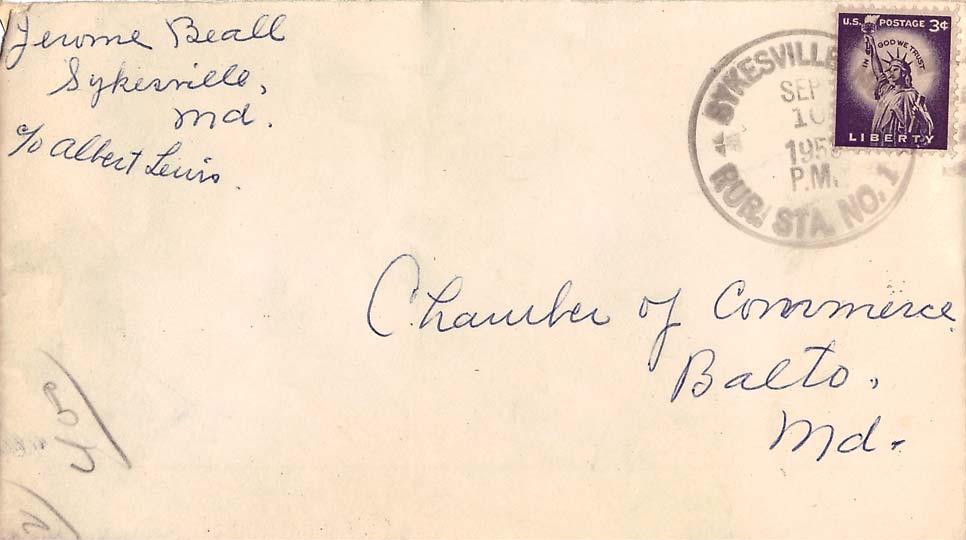 Jerome Beall
Sykesville,
Md.
c/o Albert Lewis.
SYKESVILLE
SEP
10
P.M.
RUR. STA. NO. 1
U.S. POSTAGE 3¢
IN GOD WE TRUST
LIBERTY
Chamber of Commerce
Balto.
Md.